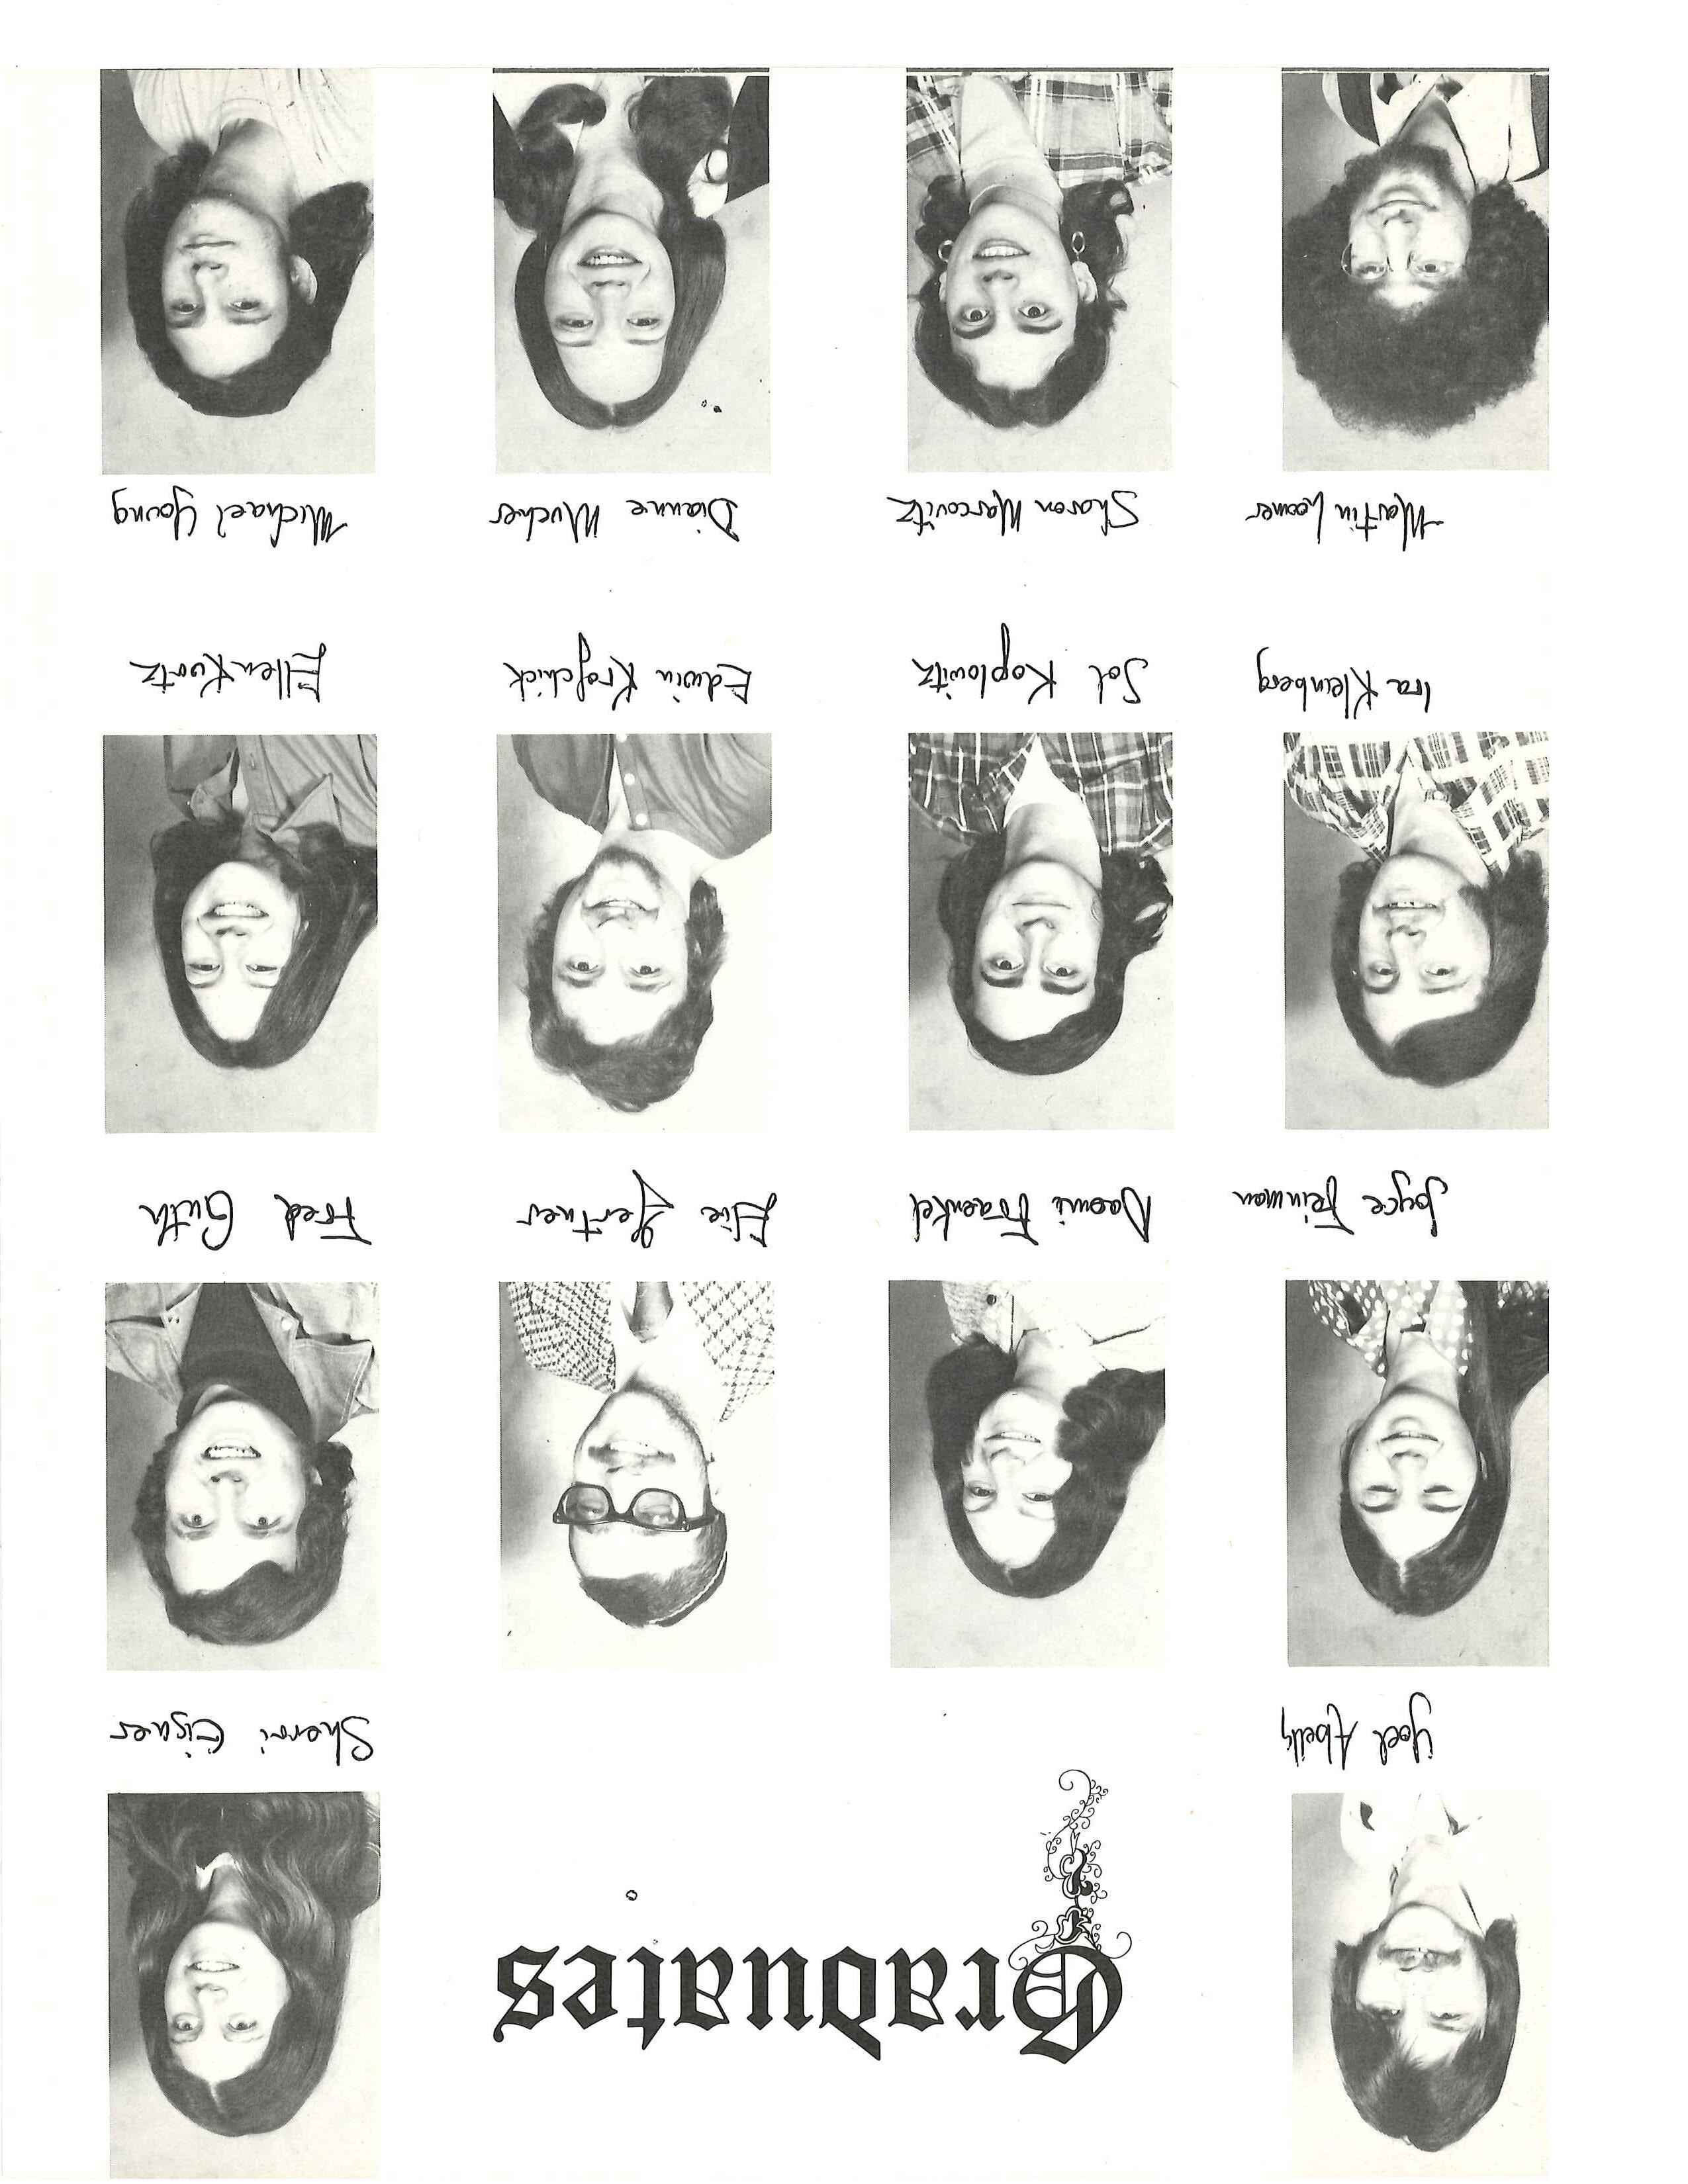 Graduates
Joel Abells
Sherri Eisner
Joyce Feinman
Naomi Fraenkel
Elie Gertner
Fred Guth
Ira Kleinberg
Sol Koplowitz
Edwin Krofchick
Ellen Kurtz
Martin Lerner
Sharon Marcovitz
Dianne Mucher
Michael Young